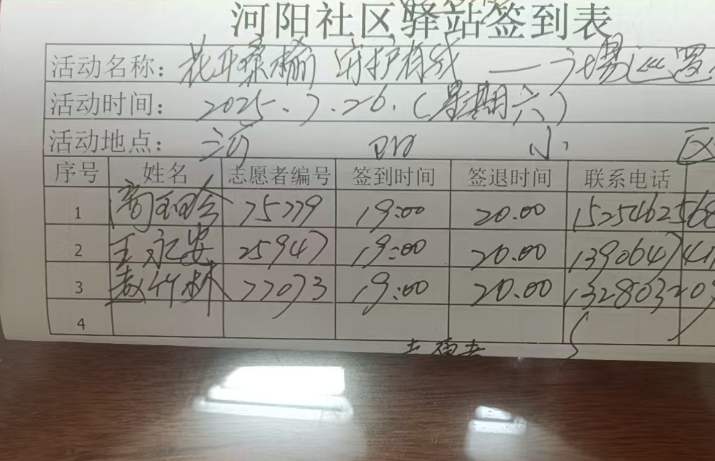 河阳社区驿站签到表
活动名称: 花开桑榆 守护有线 — 广场巡
活动时间: 2025.7.26.(星期六)
活动地点: 河 阳 小 区
序号 姓名 志愿者编号 签到时间 签退时间 联系电话
1 75779 19:00 20.00 152546256
2 王永安 25947 19:00 20.00 139064741
3 赵竹林 77073 19:00 20.00 13280320
4